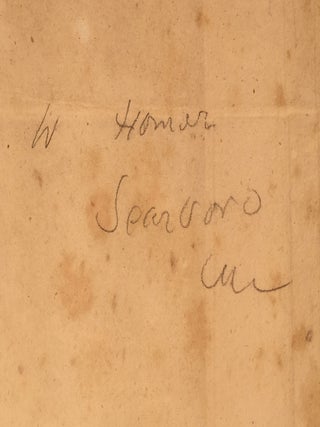 W Homer
Scarboro
Me